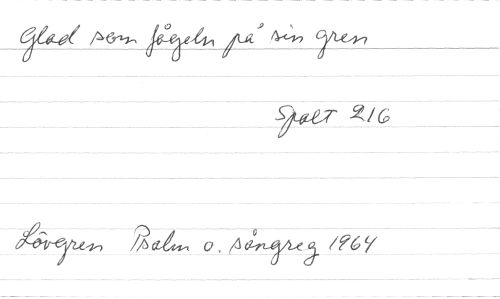 Glad som fågeln på sin gren
Spalt 216
Lövgren Psalm o. sångreg 1964